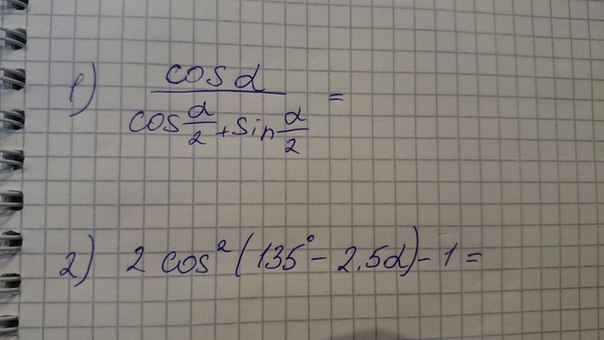 1) cos α / (cos α/2 + sin α/2) =
2) 2 cos² (135° - 2,5α) - 1 =